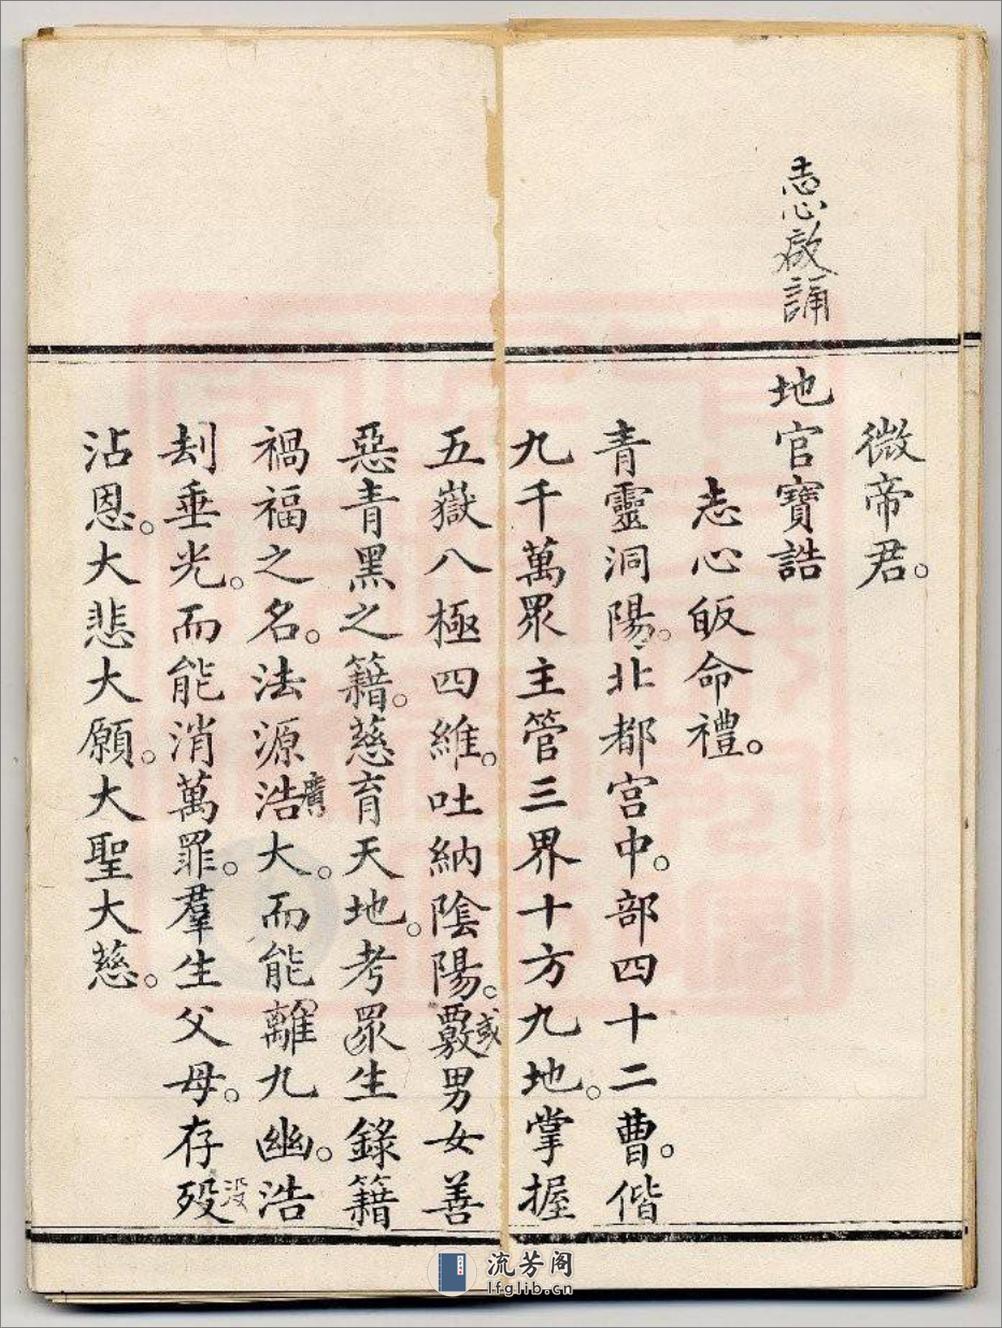 志心啟誦
微帝君。
地官寶誥
志心皈命禮。
青靈洞陽。北都宮中。部四十二曹。偕
九千萬眾主管三界十方九地。掌握
五嶽八極四維。吐納陰陽。覈男女善
或
惡青黑之籍。慈育天地。考眾生錄籍
禍福之名。法源浩大。而能離九幽。浩
廣
刦垂光。而能消萬罪。羣生父母。存歿
没
沾恩。大悲大願。大聖大慈。
流芳阁
lfglib.cn